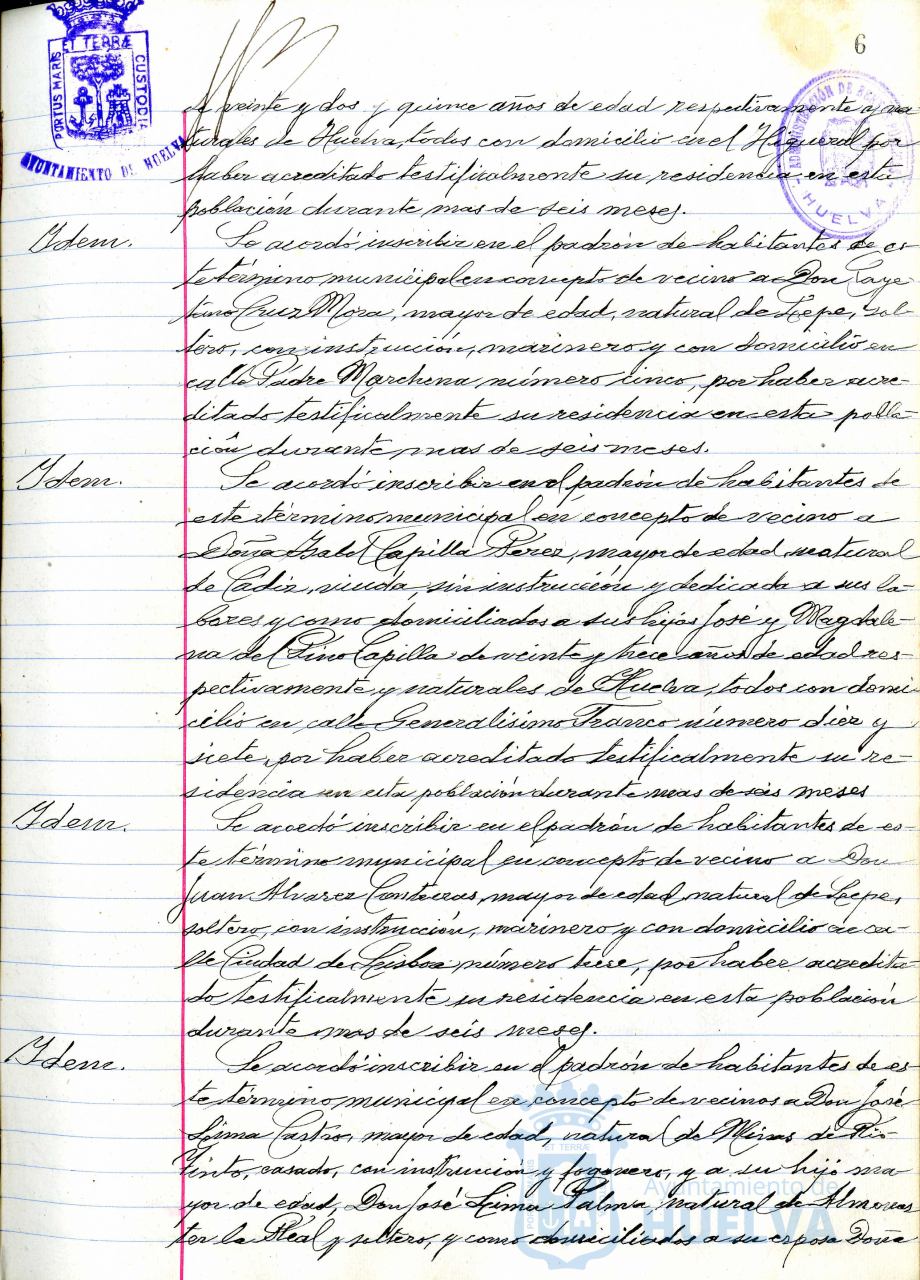 6
PORTUS MARIS ET TERRÆ CUSTODIA
AYUNTAMIENTO DE HUELVA
ADMINISTRACIÓN DE
HUELVA
de veinte y dos y quince años de edad respectivamente y na-
turales de Huelva, todos con domicilio en el Higueral por
haber acreditado testificalmente su residencia en esta
población durante mas de seis meses.
Idem.
Se acordó inscribir en el padrón de habitantes de es-
te término municipal en concepto de vecino a Don Caye-
tano Cruz Mora, mayor de edad, natural de Lepe, sol-
tero, con instrucción, marinero y con domicilio en
calle Padre Marchena número cinco, por haber acre-
ditado testificalmente su residencia en esta pobla-
ción durante mas de seis meses.
Idem.
Se acordó inscribir en el padrón de habitantes de
este término municipal en concepto de vecino a
Doña Isabel Capilla Pérez, mayor de edad, natural
de Cádiz, viuda, sin instrucción y dedicada a sus la-
bores y como domiciliados a sus hijos José y Magdale-
na del Pino Capilla de veinte y trece años de edad res-
pectivamente y naturales de Huelva, todos con domi-
cilio en calle Generalísimo Franco número diez y
siete, por haber acreditado testificalmente su re-
sidencia en esta población durante mas de seis meses
Idem.
Se acordó inscribir en el padrón de habitantes de es-
te término municipal en concepto de vecino a Don
Juan Alvarez Contreras, mayor de edad, natural de Lepe,
soltero, con instrucción, marinero y con domicilio en ca-
lle Ciudad de Lisboa número trece, por haber acredita-
do testificalmente su residencia en esta población
durante mas de seis meses.
Idem.
Se acordó inscribir en el padrón de habitantes de es-
te término municipal en concepto de vecinos a Don José
Lima Castro, mayor de edad, natural de Minas de Rio-
Tinto, casado, con instrucción y fogonero, y a su hijo ma-
yor de edad, Don José Lima Palma, natural de Almonas-
ter la Real y soltero, y como domiciliados a su esposa Doña
Ayuntamiento de
HUELVA